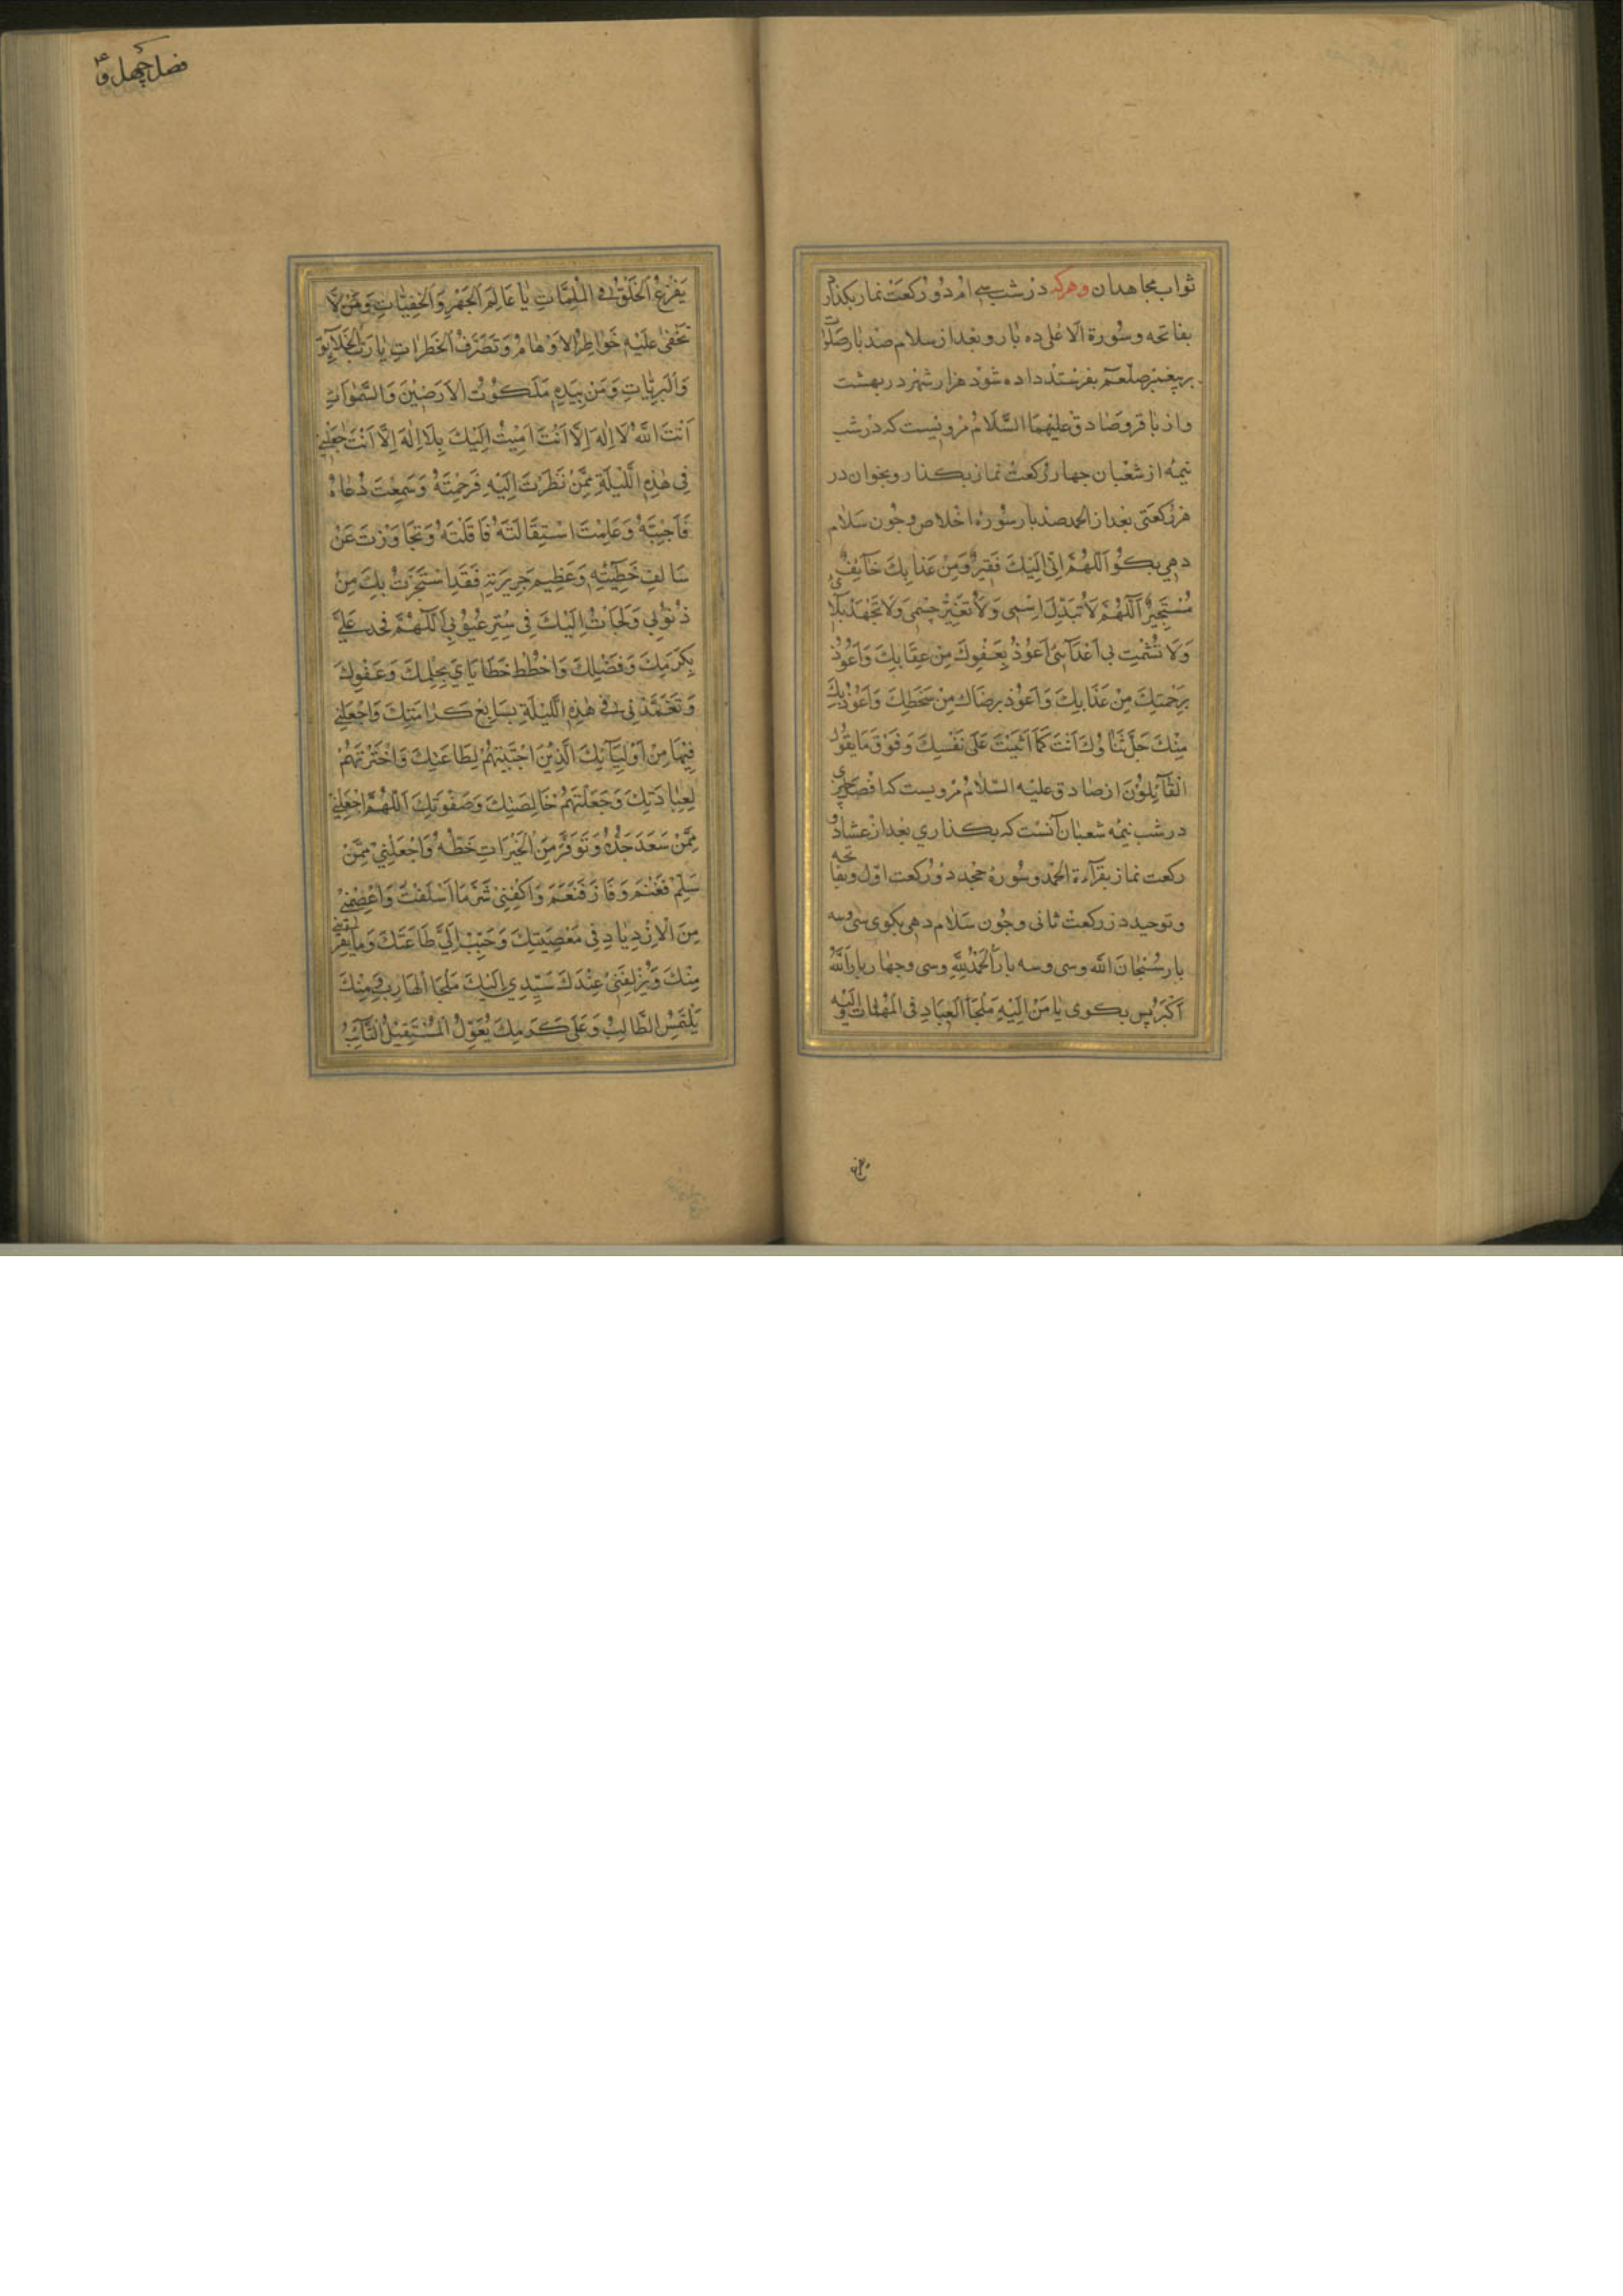 ثواب مجاهدان وهركه در شب سی ام دو ركعت نماز بكذارد
بفاتحه وسورة الاعلی ده بار وبعد از سلام صد بار صلوات
بر پیغمبر صلعم بفرستد داده شود هزار شهر در بهشت
واز باقر وصادق علیهما السَّلام مرویست كه در شب
نیمه از شعبان چهار ركعت نماز بكذار وبخوان در
هر ركعتی بعد از الحمد صد بار سوره اخلاص وچون سلام
دهی بكو اَللّهُمَّ اِنّی اِلَیْكَ فَقیرٌ وَمِنْ عَذابِكَ خآیِفٌ
مُسْتَجیرٌ اَللّهُمَّ لاتُبَدِّلْ اِسْمی وَلاتُغَیِّرْ جِسْمی وَلاتَجْهَدْ بَلآئی
وَلا تُشْمِت بی اَعْدَآئی اَعُوذُ بِعَفْوِكَ مِنْ عِقَابِكَ وَاَعُوذُ
بِرَحْمَتِكَ مِنْ عَذَابِكَ وَاَعُوذ بِرِضَاكَ مِنْ سَخَطِكَ وَاَعُوذُ بِكَ
مِنْكَ جَلَّ ثَنَاؤُكَ اَنْتَ كَمَا اَثْنَیْتَ عَلَی نَفْسِكَ وَفَوْقَ مَا یَقُولُ
الْقَآئِلُونَ از صادق علیه السّلام مرویست كه افضل چیزی
در شب نیمه شعبان آنست كه بكذاری بعد از عشا دو
ركعت نماز بقرآءة الحمد وسوره جحد در ركعت اوّل وبفاتحه
وتوحید در ركعت ثانی وچون سَلام دهی بكوی سی وسه
بار سُبْحَانَ اللَّه وسی وسه بار اَلْحَمْدُلِلَّهِ وسی وچهار بار اَللَّهُ
اَكْبَرُ پس بكوی یا مَنْ اِلَیْهِ مَلْجَأُ الْعِبَادِ فِی الْمُهِمَّاتِ وَاِلَیْهِ
یَفْزَعُ الْخَلْقُ فِی الْمُلِمَّاتِ یَا عَالِمَ الْجَهْرِ وَالْخَفِیَّاتِ وَمَنْ لَا
تَخْفی عَلَیْهِ خَوَاطِرُ الاَوْهَامِ وَتَصَرُّفُ الْخَطَرَاتِ یَا رَبَّ الْخَلَآیِقِ
وَالْبَرِیَّاتِ وَمَنْ بِیَدِهِ مَلَكُوتُ الاَرَضِیْنَ وَالسَّمَوَاتِ
اَنْتَ اللَّهُ لَا اِلهَ اِلَّا اَنْتَ اَمِتُّ اِلَیْكَ بِلَا اِلهَ اِلَّا اَنْتَ اجْعَلْنِی
فِی هذِهِ اللَّیْلَةِ مِمَّنْ نَظَرْتَ اِلَیْهِ فَرَحِمْتَهُ وَسَمِعْتَ دُعَاهُ
فَاَجَبْتَهُ وَعَلِمْتَ اسْتِقَالَتَهُ فَاَقَلْتَهُ وَتَجَاوَزْتَ عَنْ
سَالِفِ خَطِیْئَتِهِ وَعَظِیمِ جَرِیرَتِهِ فَقَدِ اسْتَجَرْتُ بِكَ مِنْ
ذُنُوبِی وَلَجَأْتُ اِلَیْكَ فِی سَتْرِ عُیُوبِی اَللّهُمَّ فَجُد عَلَیَّ
بِكَرَمِكَ وَفَضْلِكَ وَاحْطُطْ خَطَایَایَ بِحِلْمِكَ وَعَفْوِكَ
وَتَغَمَّدْنِی فِی هذِهِ اللَّیْلَةِ بِسَابِغِ كَرَامَتِكَ وَاجْعَلْنِی
فِیْهَا مِنْ اَوْلِیَآئِكَ الَّذِیْنَ اجْتَبَیْتَهُمْ لِطَاعَتِكَ وَاخْتَرْتَهُمْ
لِعِبَادَتِكَ وَجَعَلْتَهُمْ خَالِصَتِكَ وَصَفْوَتِكَ اَللّهُمَّ اجْعَلْنِی
مِمَّنْ سَعَدَ جَدُّهُ وَتَوَفَّرَ مِنَ الْخَیْرَاتِ حَظُّهُ وَاجْعَلْنِی مِمَّنْ
سَلِمَ فَغَنَمَ وَفَازَ فَنَعَمَ وَاكْفِنِی شَرَّ مَا اَسْلَفْتُ وَاعْصِمْنِی
مِنَ الْاِزْدِیَادِ فِی مَعْصِیَتِكَ وَحَبِّبْ اِلَیَّ طَاعَتَكَ وَمَا یُقَرِّبُنِی
مِنْكَ وَیُزْلِفُنِی عِنْدَكَ سَیِّدِی اِلَیْكَ مَلْجَأُ الْهَارِبِ وَمِنْكَ
یَلْتَمِسُ الطَّالِبُ وَعَلَی كَرَمِكَ یُعَوِّلُ الْمُسْتَقِیْلُ التَّآئِبُ